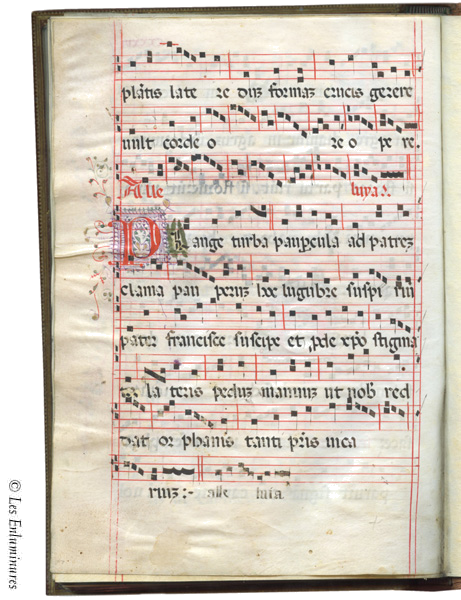 plantis latere duz formaz crucis gerere
vult corde o re o pe re.
Alle luya.
Plange turba paupcula ad patrez
clama pau peruz hoc lugubre suspi riu
pater francisce suscipe et
la teris pedum manuum ut nob red
dat or phanis tanti pris vica
riuz :- alle luia
© Les Enluminures